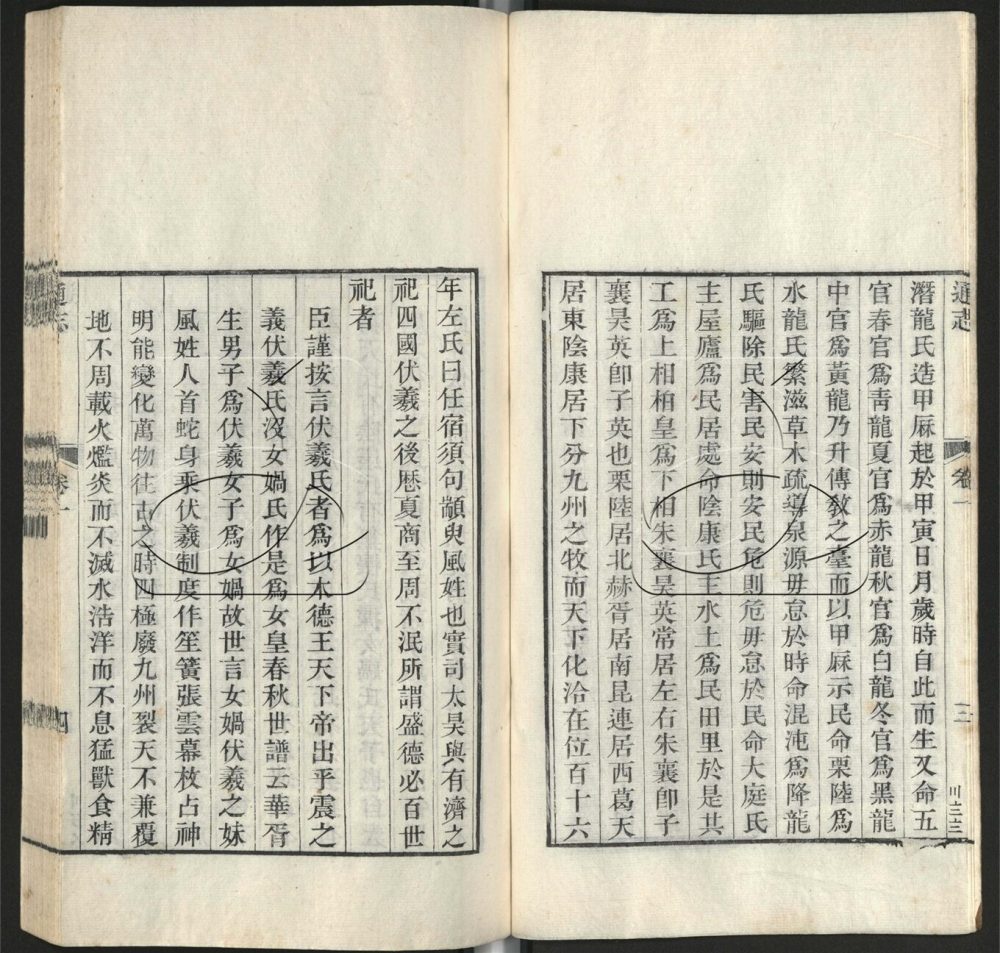 通志
卷一
三
川三三
潛龍氏造甲厤起於甲寅日月歲時自此而生又命五
官春官爲靑龍夏官爲赤龍秋官爲白龍冬官爲黑龍
中官爲黃龍乃升傳敎之臺而以甲厤示民命栗陸爲
水龍氏繁滋草木疏導泉源毋怠於時命混沌爲降龍
氏驅除民害民安則安民危則危毋怠於民命大庭氏
主屋廬爲民居處命陰康氏主水土爲民田里於是共
工爲上相柏皇爲下相朱襄昊英常居左右朱襄卽子
襄昊英卽子英也栗陸居北赫胥居南昆連居西葛天
居東陰康居下分九州之牧而天下化洽在位百十六
年左氏曰任宿須句顓臾風姓也實司太昊與有濟之
祀四國伏羲之後歷夏商至周不泯所謂盛德必百世
祀者
臣謹按言伏羲氏者爲以木德王天下帝出乎震之
義伏羲氏沒女媧氏作是爲女皇春秋世譜云華胥
生男子爲伏羲女子爲女媧故世言女媧伏羲之妹
風姓人首蛇身乘伏羲制度作笙簧張雲幕枚占神
明能變化萬物往古之時四極廢九州裂天不兼覆
地不周載火爁炎而不滅水浩洋而不息猛獸食精
通志
卷一
四